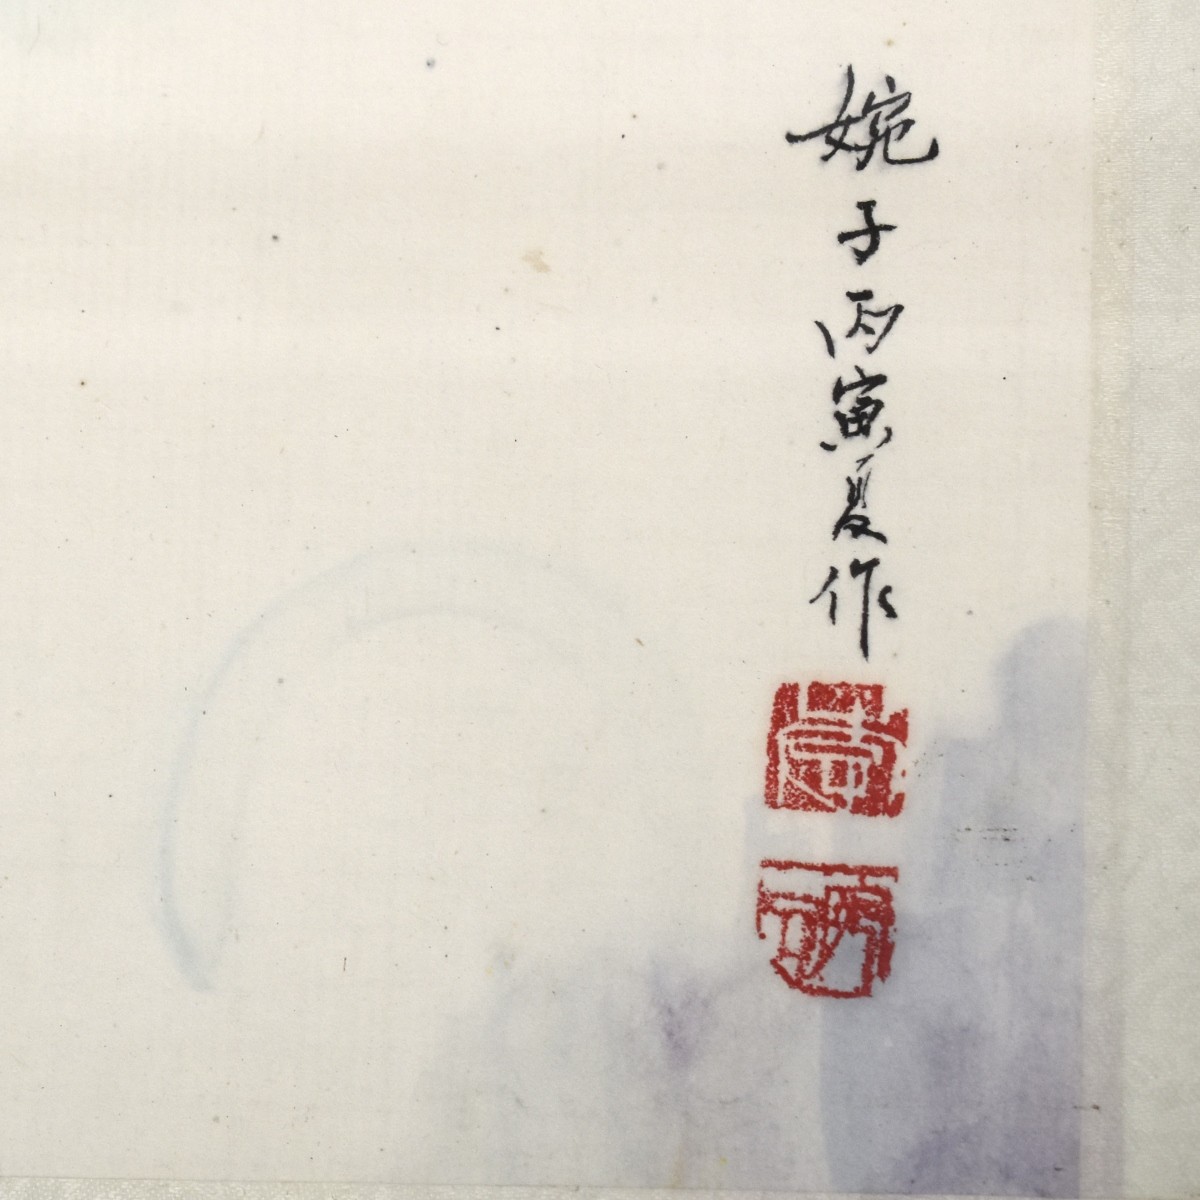 婉子丙寅夏作